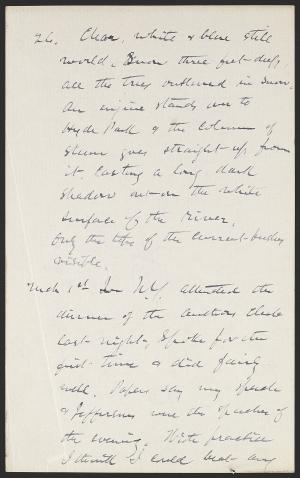 26. Clear, white & blue still
world. Snow three feet deep,
all the trees outlined in snow.
An engine stands over to
Hyde Park & the column of
steam goes straight up from
it, casting a long dark
shadow out on the white
surface of the River,
Only the line of the current bushes
visible.
Mch 1st In N.Y. attended the
dinner of the Authors Club
last night, Spoke for the
first time & did fairly
well. Papers say my speech
& Jeffersons were the speeches of
the evening. With practice
I think I could beat any